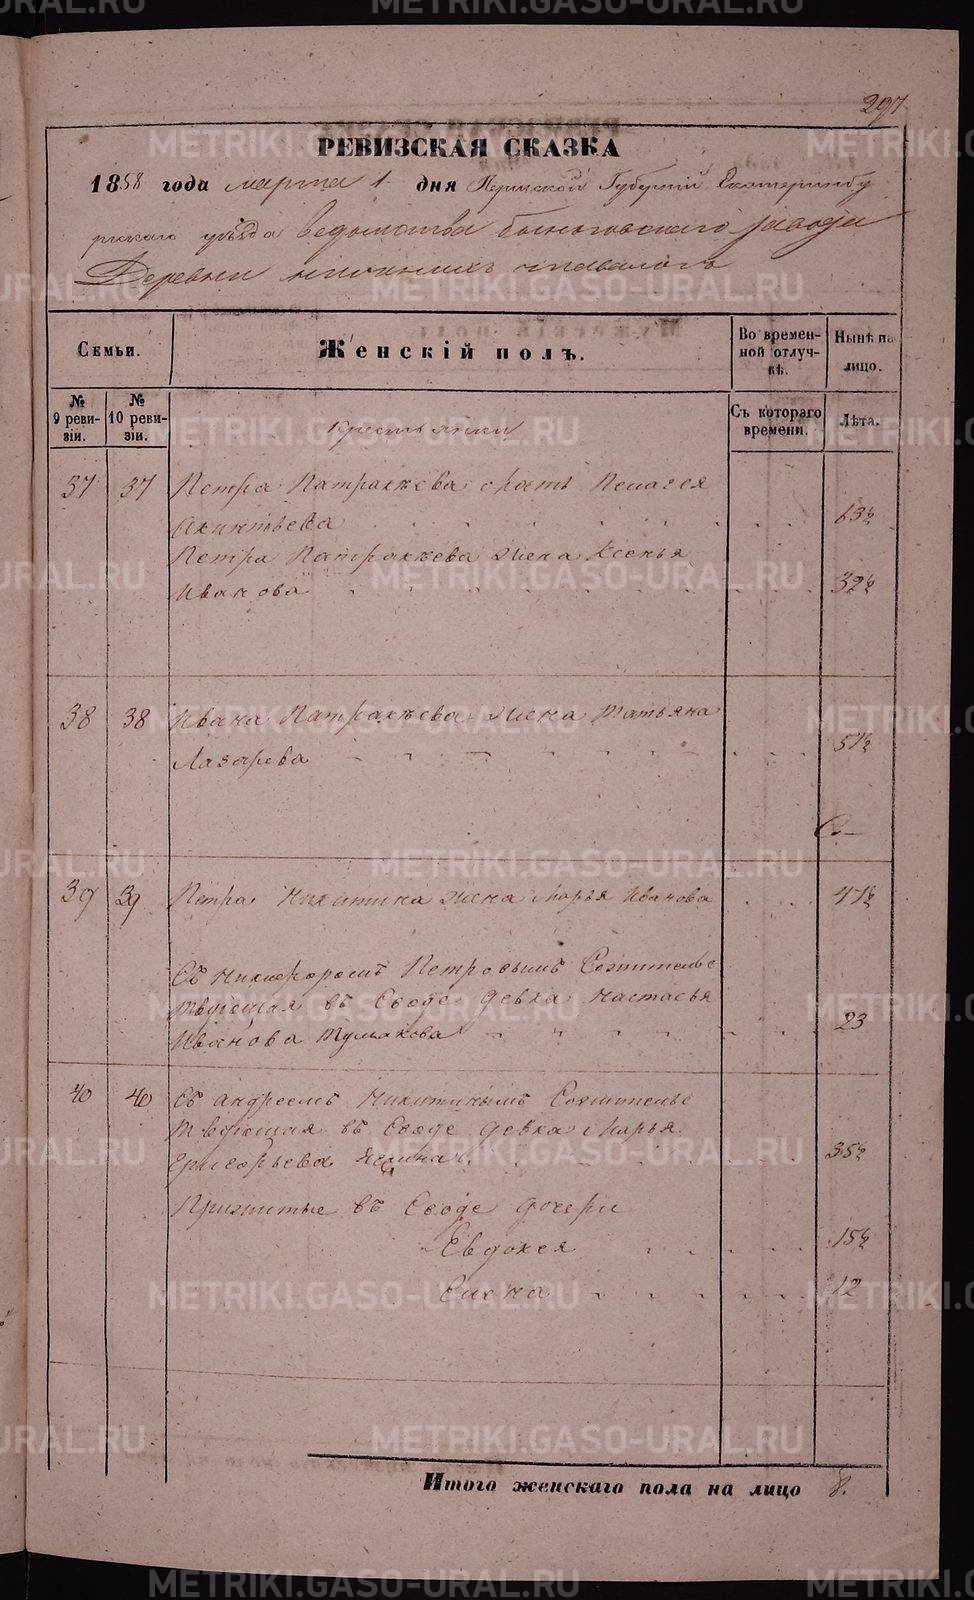 297
РЕВИЗСКАЯ СКАЗКА
1858 года марта 1 дня Пермской Губернии Екатеринбу
ргскаго уѣзда Ведомства Быньговскаго завода
Деревни
Семьи.
Женскій полъ.
Во времен-
ной отлуч-
кѣ.
Нынѣ на
лицо.
№ 9 реви-
зіи.
№ 10 реви-
зіи.
Крестьянки
Съ котораго
времени.
Лѣта.
37 37 Петра Патракѣева мать Пелагея
Акинтьева 63½
Петра Патракѣева жена Ксенья
Иванова 32½
38 38 Ивана Патракѣева жена Татьяна
Лазарева 51½
39 39 Петра Никитина жена Марья Иванова 47½
Съ Никифоромъ Петровымъ Сожительс
твующая въ Сводѣ девка Настасья
Иванова Тулякова 23
40 40 Съ Андреемъ Никитинымъ Сожительс
твующая въ Сводѣ девка Марья
Григорьева 35½
Прижитые въ Сводѣ дочери
Евдокея 15½
Елена 12
Итого женскаго пола на лицо 8.
METRIKI.GASO-URAL.RU